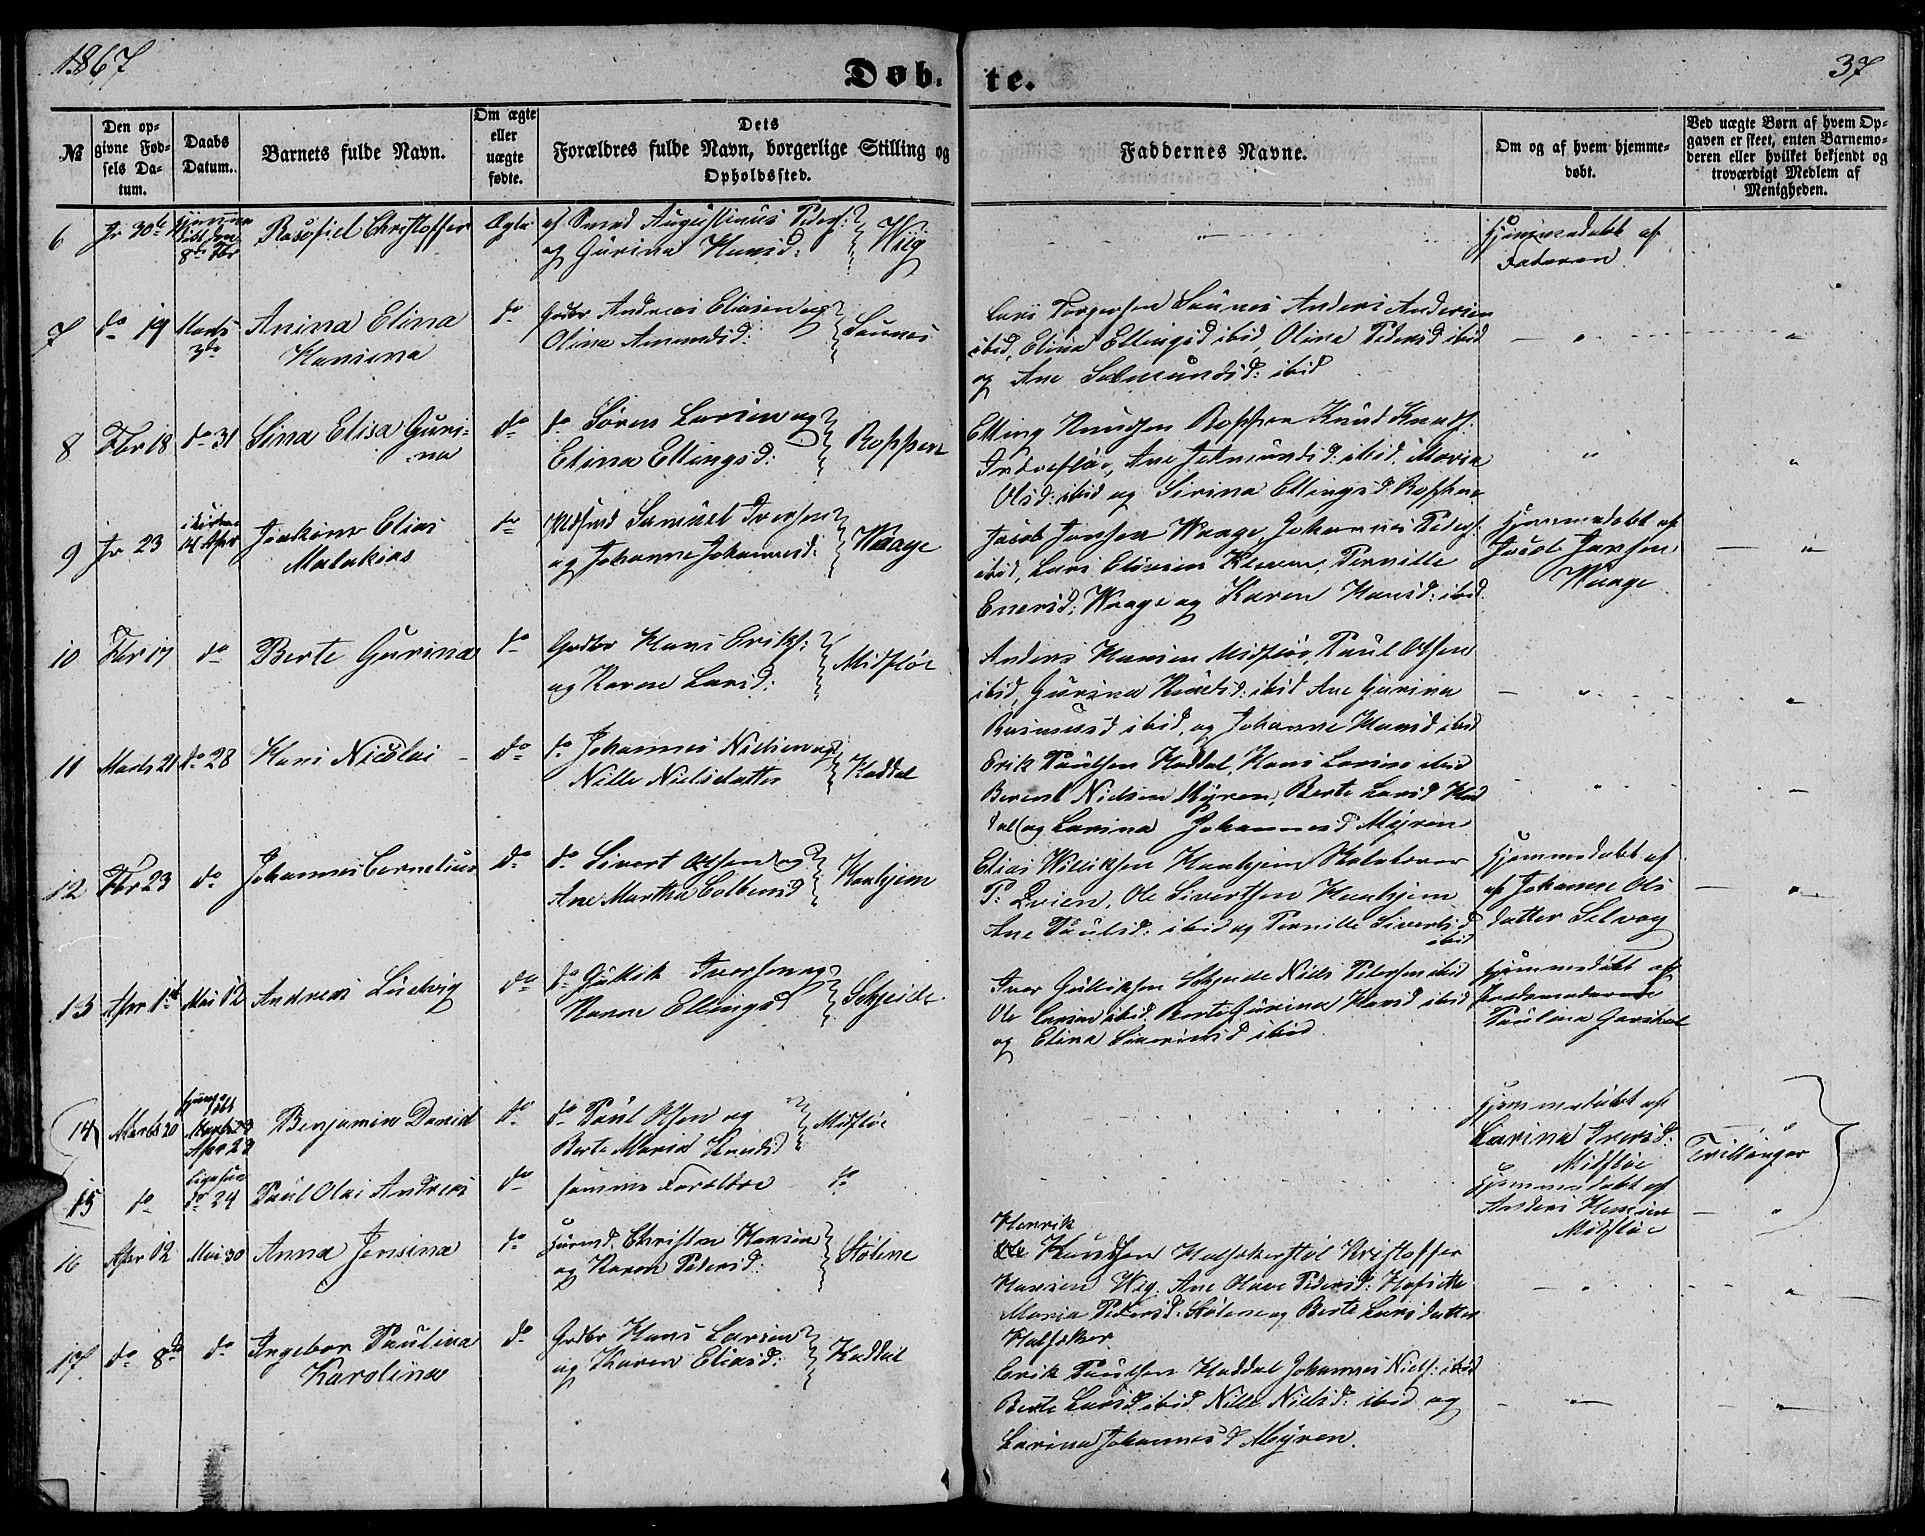 1867
Døb-
te.
37
№
Den op-
givne Fød-
sels Da-
tum.
Daabs
Datum.
Barnets fulde Navn.
Om ægte
eller
uægte
fødte.
Dets
Forældres fulde Navn, borgerlige Stilling og
Opholdssted.
Faddernes Navne.
Om og af hvem hjemme-
døbt.
Ved uægte Børn af hvem Op-
gaven er skeet, enten Barnemo-
deren eller hvilket bekjendt og
troværdigt Medlem af
Menigheden.
6 Jr 30te 8de Fbr Rasofiel Christoffer Ægte af Smed Augustinus Peders:
og Gurina Hansd: Wiig
Hjemmedøbt af
Faderen
7 do 19 Marts
3de Anina Elina
Hansina do Grdbr Andreas Eliasen og
Olina Amundsd: Saunes
Lars Torgersen Saunes Anders Andersen
ibid, Elina Ellingsd ibid Olina Pedersd ibid
og Ane Salmundsd: ibid
8 Fbr 18 do 31 Sina Elisa Guri-
na do do Søren Larsen og
Elina Ellingsd: Roppen
Elling Knudsen Roppen Knud Knuds:
Indrefløe, Ane J. Amundsd: ibid, Maria
Olsd: ibid og Sirina Ellingsd: Roppen
9 Jr 23 14 Apr Joakim Elias
Malakias do Huusmd Samuel Iversen
og Johanne Johannesd: Waage
Jacob Jonsen Waage, Johannes Peders:
ibid, Lars Eliasen Kleven, Pernille
Enersd: Waage og Karen Hansd: ibid
Hjemmedøbt af
Jacob Jonsen
Waage
10 Fbr 17 do Berte Gurina do Grdbr Hans Eriks:
og Karen Larsd: Midfløe
Anders Hansen Midfløe, Paul Olsen
ibid, Gurina Knudsd: ibid Ane Gurina
Rasmusd ibid, og Johanne Hansd ibid
11 Marts 21 do 28 Hans Nicolai do do Johannes Nielsen og
Nille Nielsdatter Haddal
Erik Paulsen Haddal, Hans Larsen ibid
Berent Nielsen Myren, Berte Larsd Had
dal og Larina Johannesd Myren
12 Fbr 23 do Johannes Cornelius do do Sivert Olsen og
Ane Martha Colbensd Haahjem
Elias Williksen Haahjem Skolelærer
P: Dvien, Ole Sivertsen Haahjem
Ane Paulsd: ibid og Pernille Sivertsd
ibid
Hjemmedøbt af
af Johanne Ols
datter Selvag
13 Apr 1st Mai 12 Andreas Ludvig do do Gullik Iversen og
Karen Ellingsd Schjeide
Iver Gulliksen Schjeide Niels Petersen ibid
Ole Larsen ibid. Berte Gurina Hansd ibid
og Elina Siverinsd ibid
Hjemmedøbt af
Jordemoderen
Paulina Garshol
14 Marts 20 Apr 22 Benjamin Daniel do do Paul Olsen og
Berte Maria Knudsd Midfløe
Hjemmedøbt af
Larina Iversd:
Midfløe
Trillinger
15 do do 24 Paul Olai Andreas do samme Forældre do
Hjemmedøbt af
Anders Hansen
Midfløe
16 Apr 12 Mai 30 Anna Jensina do Huusmd. Christen Hansen
og Karen Pedersd: Stølene
Henrik
Knudsen Halskerstøl Kristoffer
Hansen Wiig. Ane Olave Pedersd: Hafskie
Maria Pedersd: Stølene og Berte Larsdatter
Halfsker
17 do 8de do Ingebor Paulina
Karolina do Grdbr Hans Larsen
og Karen Eliasd: Haddal
Erik Paulsen Haddal Johannes Niels: ibid
Berte Larsd: ibid Nille Nielsd: ibid og
Larina Johannesd Myren.